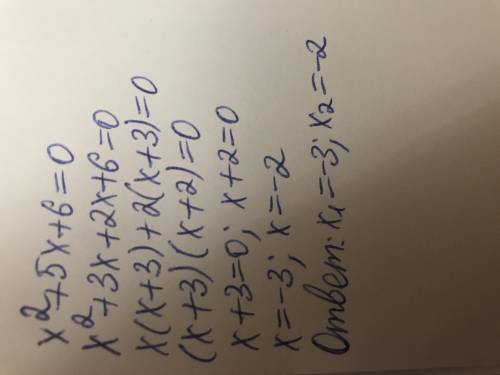 x²+5x+6=0
x²+3x+2x+6=0
x(x+3)+2(x+3)=0
(x+3)(x+2)=0
x+3=0; x+2=0
x=-3; x=-2
Ответ: x₁=-3; x₂=-2